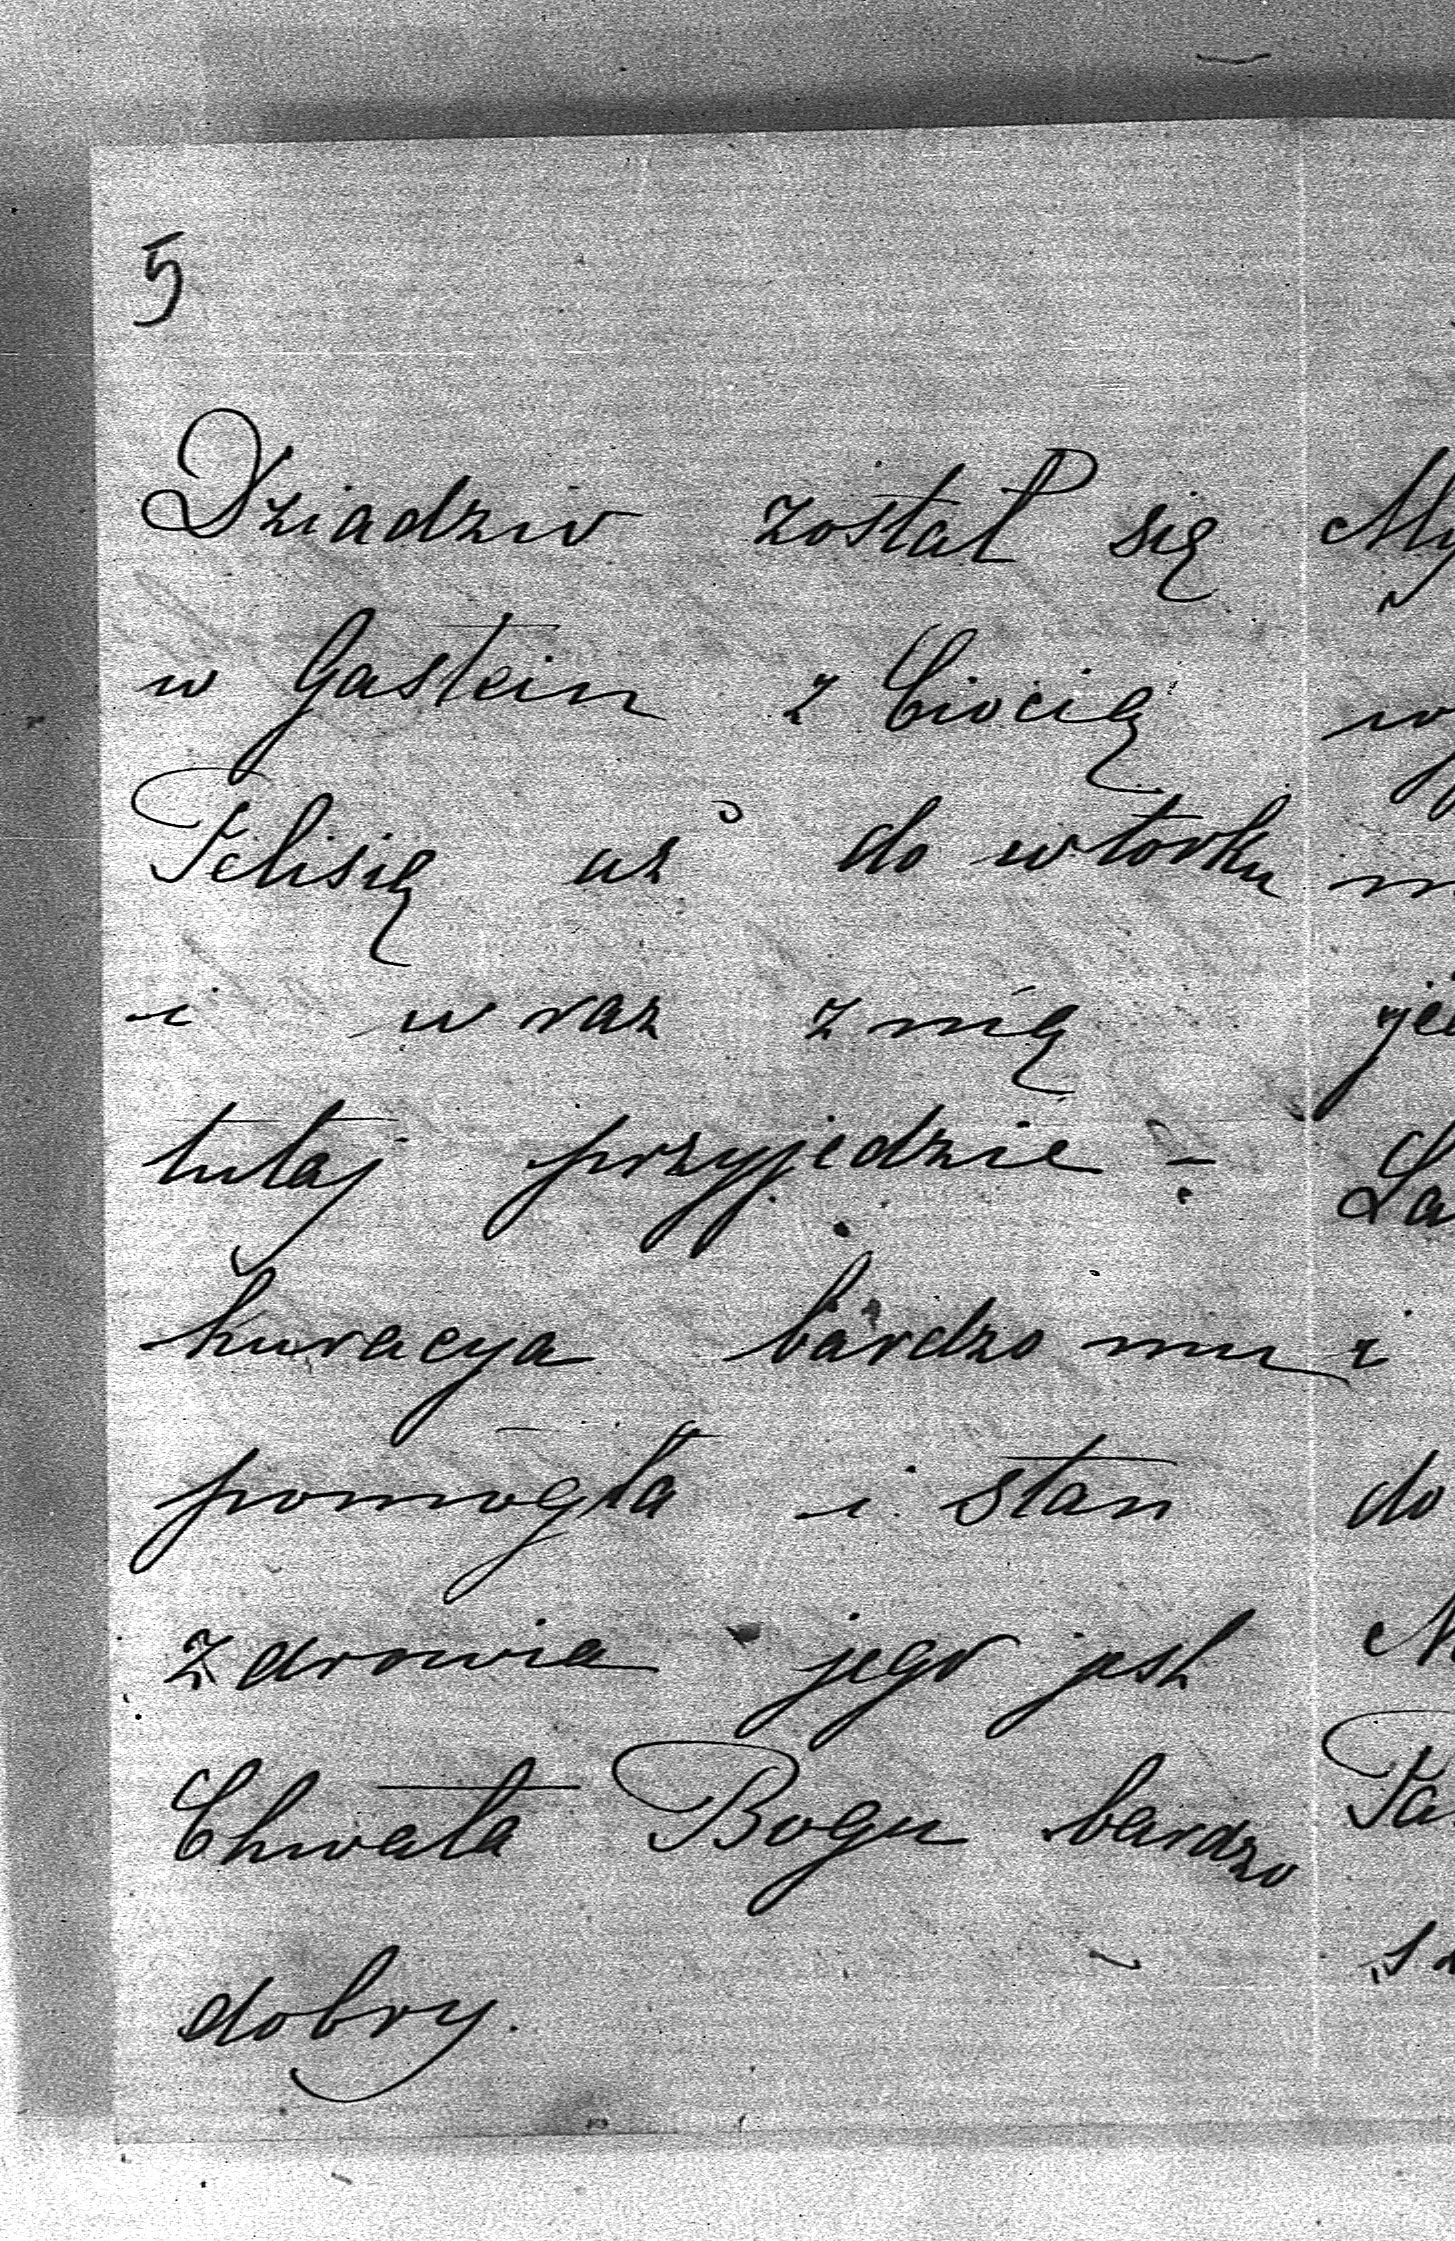 5
Dziadzio został się
w Gastein z Ciocią
Felisią aż do wtorku
i wraz z nią
tutaj przyjedzie -
kuracya bardzo mu
pomogła i stan
zdrowia jego jest
Chwała Bogu bardzo
dobry.